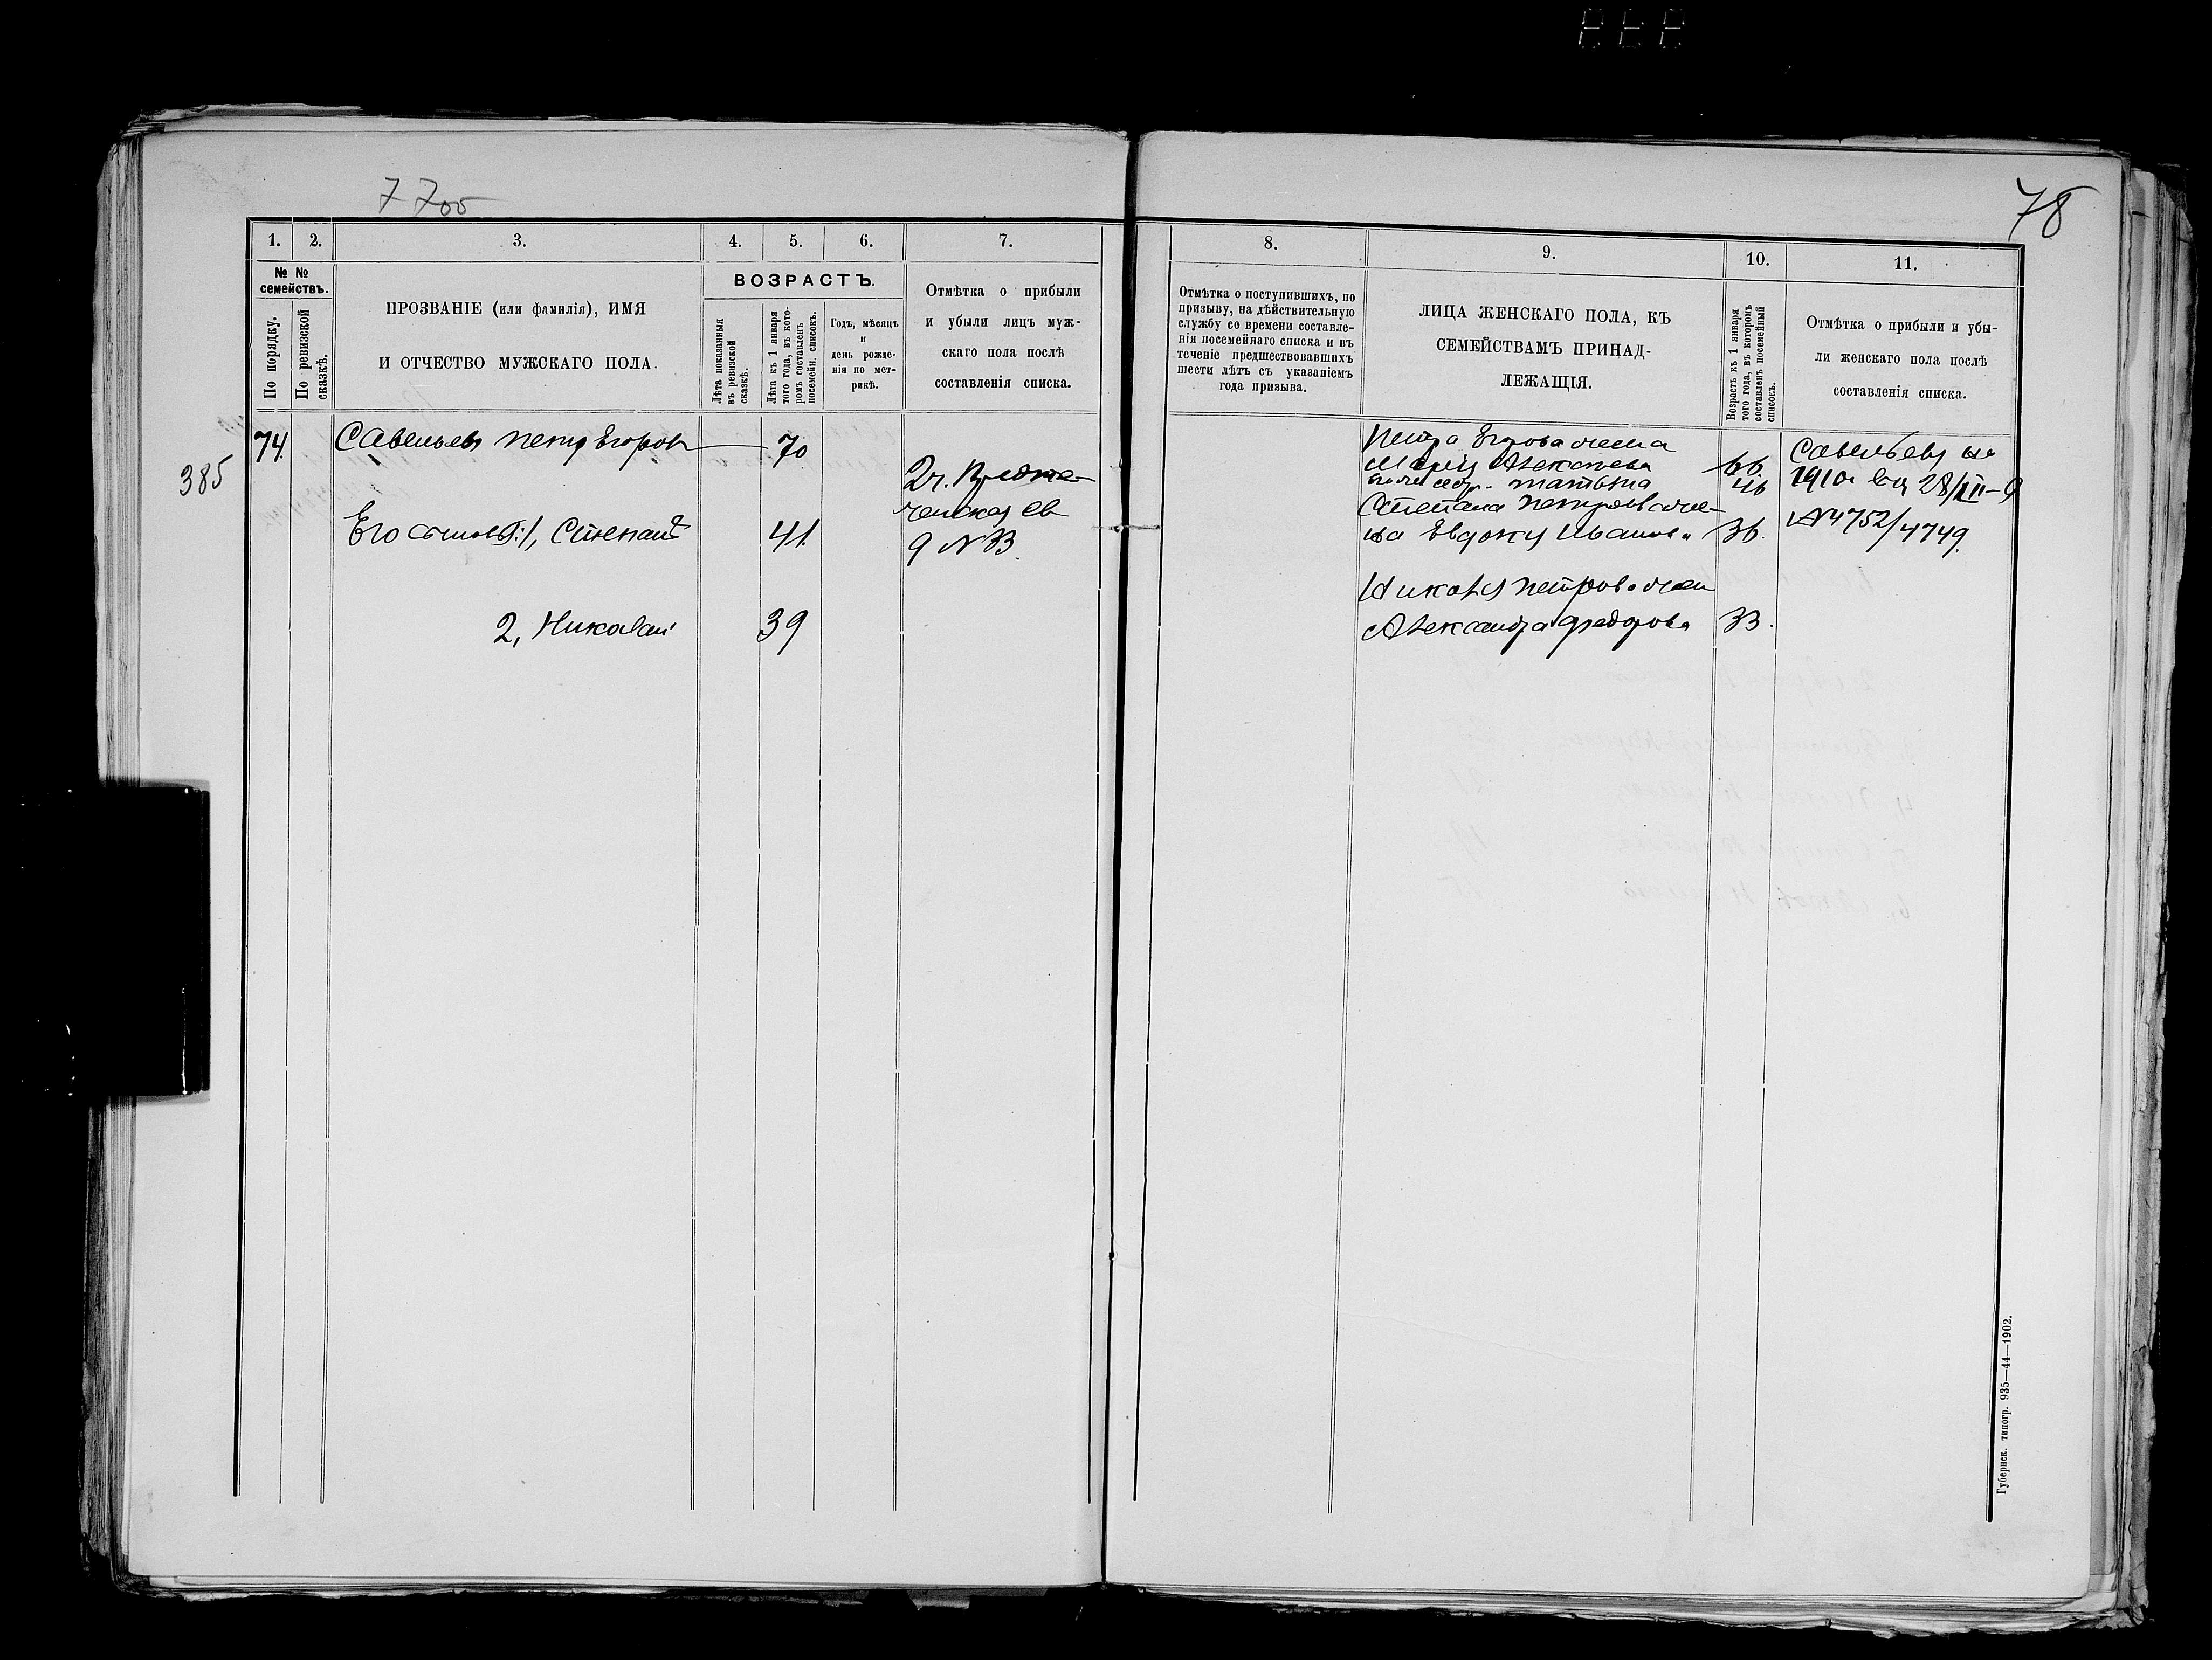 7 700
78
1.
2.
3.
4.
5.
6.
7.
8.
9.
10.
11.
№ №
семействъ.
По порядку.
По ревизской
сказкѣ.
ПРОЗВАНІЕ (или фамилія), ИМЯ
И ОТЧЕСТВО МУЖСКАГО ПОЛА.
ВОЗРАСТЪ.
Лѣта показанныя
въ ревизской
сказкѣ.
Лѣта къ 1 января
того года, въ кото-
ромъ составленъ
посемейн. списокъ.
Годъ, мѣсяцъ
и
день рожде-
нія по мет-
рикѣ.
Отмѣтка о прибыли
и убыли лицъ муж-
скаго пола послѣ
составленія списка.
Отмѣтка о поступившихъ, по
призыву, на дѣйствительную
службу со времени составле-
нія посемейнаго списка и въ
теченіе предшествовавшихъ
шести лѣтъ съ указаніемъ
года призыва.
ЛИЦА ЖЕНСКАГО ПОЛА, КЪ
СЕМЕЙСТВАМЪ ПРИНАД-
ЛЕЖАЩІЯ.
Возрастъ къ 1 января
того года, въ которомъ
составленъ посемейный
списокъ.
Отмѣтка о прибыли и убы-
ли женскаго пола послѣ
составленія списка.
385
74.
Савельевъ Петръ Егоровъ
70
Его сыновья: 1, Степанъ
41.
2, Николай
39
2 ч.
9 № 33.
Петра Егорова жена
Алексѣева
66.
Татьяна
46
Степана Петрова же-
на Евдокія Иванова
36.
Николая Петрова жена
Александра Федорова
33.
Савельеву
1910 28/XII-9
№ 4752/4749.
Губернск. типогр. 935—44—1902.